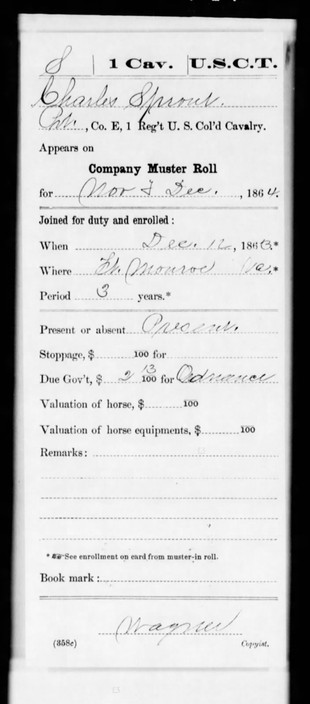 S | 1 Cav. | U.S.C.T.
Charles Sprout.
, Co. E, 1 Reg't U. S. Col'd Cavalry.
Appears on
Company Muster Roll
for Nov & Dec. , 1864.
Joined for duty and enrolled :
When Dec. 12, 1863.*
Where Ft. Monroe Va.*
Period 3 years.*
Present or absent Present.
Stoppage, $ 100 for
Due Gov't, $ 2 13/100 for Ordnance
Valuation of horse, $ 100
Valuation of horse equipments, $ 100
Remarks:
* See enrollment on card from muster-in roll.
Book mark:
Wagner
(358c) Copyist.